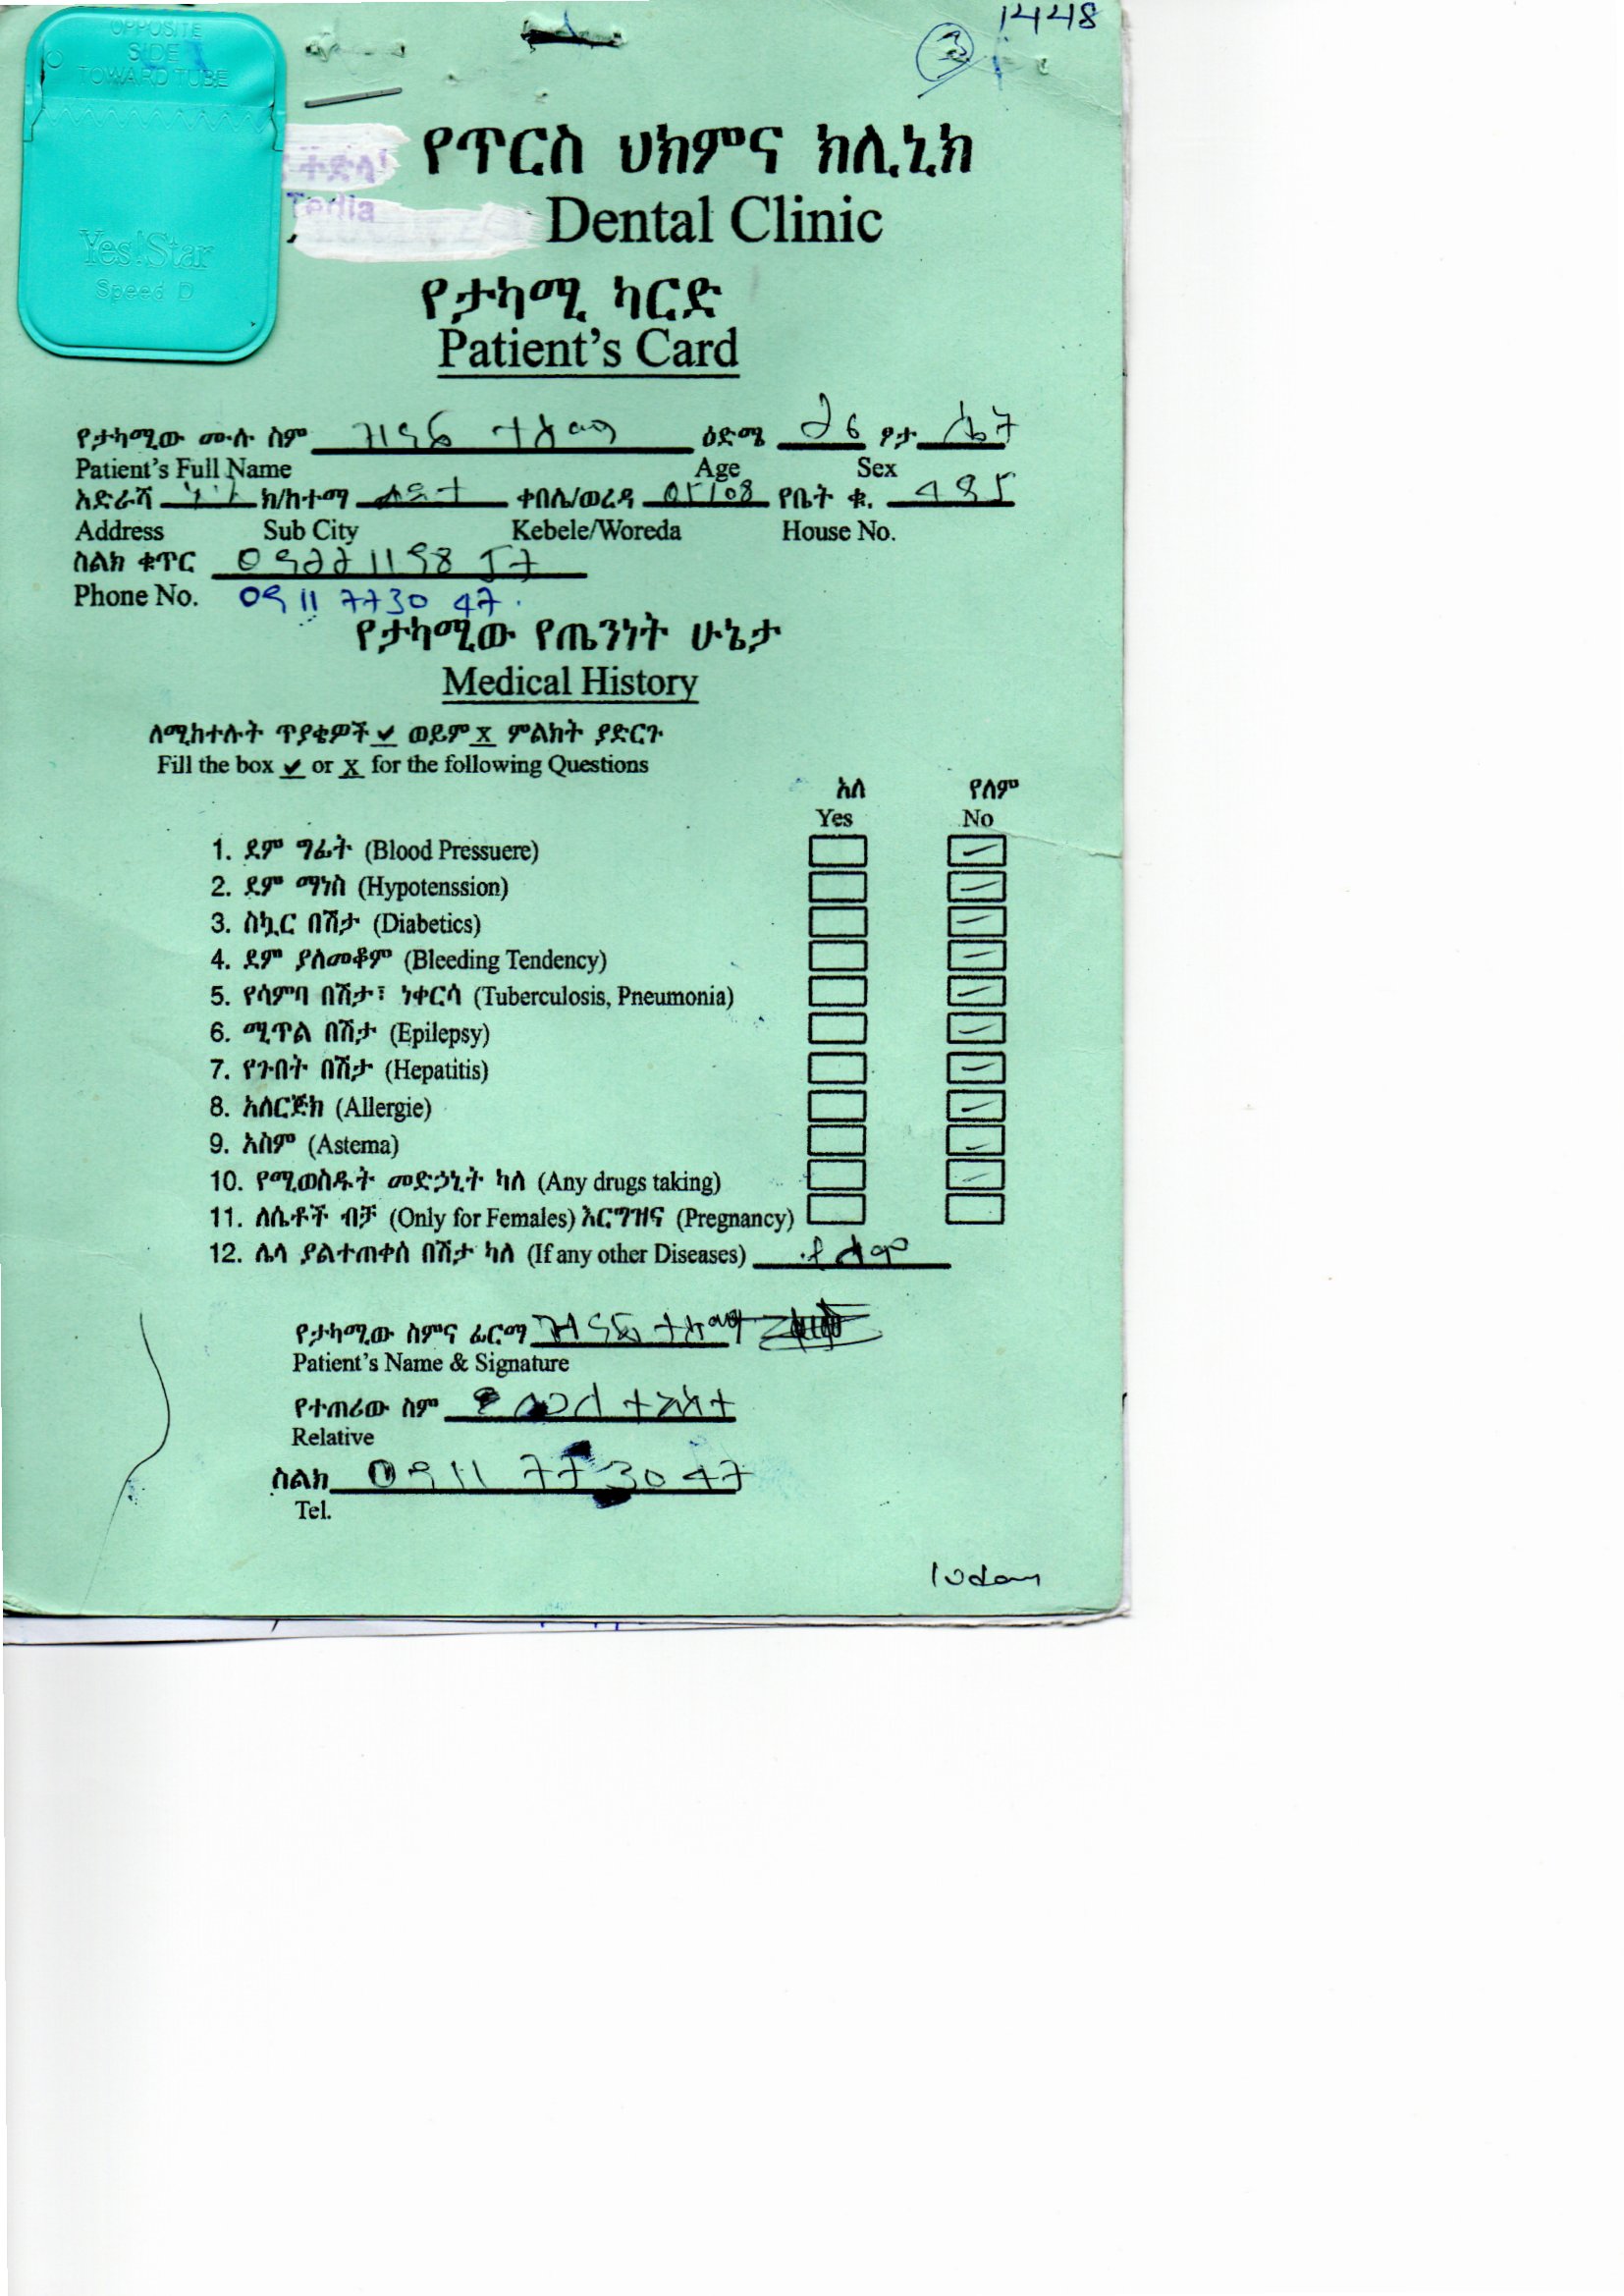 1448
3
OPPOSITE
SIDE
TOWARD TUBE
Yes!Star
Speed D
የጥርስ ህክምና ክሊኒክ
Tedla
Dental Clinic
የታካሚ ካርድ
Patient's Card
የታካሚው ሙሉ ስም ዕድሜ 26 ፆታ ሴት
Patient's Full Name Age Sex
አድራሻ ክ/ከተማ ልደታ ቀበሌ/ወረዳ 05/08 የቤት ቁ. 485
Address Sub City Kebele/Woreda House No.
ስልክ ቁጥር
Phone No. 0911 7730 47
የታካሚው የጤንነት ሁኔታ
Medical History
ለሚከተሉት ጥያቄዎች ✔ ወይም x ምልክት ያድርጉ
Fill the box ✔ or X for the following Questions
አለ የለም
Yes No
1. ደም ግፊት (Blood Pressuere)
2. ደም ማነስ (Hypotenssion)
3. ስኳር በሽታ (Diabetics)
4. ደም ያለመቆም (Bleeding Tendency)
5. የሳምባ በሽታ፣ ነቀርሳ (Tuberculosis, Pneumonia)
6. ሚጥል በሽታ (Epilepsy)
7. የጉበት በሽታ (Hepatitis)
8. አለርጅክ (Allergie)
9. አስም (Astema)
10. የሚወስዱት መድኃኒት ካለ (Any drugs taking)
11. ለሴቶች ብቻ (Only for Females) እርግዝና (Pregnancy)
12. ሌላ ያልተጠቀሰ በሽታ ካለ (If any other Diseases) የለም
የታካሚው ስምና ፊርማ
Patient's Name & Signature
የተጠሪው ስም
Relative
ስልክ 0911 77 30 47
Tel.